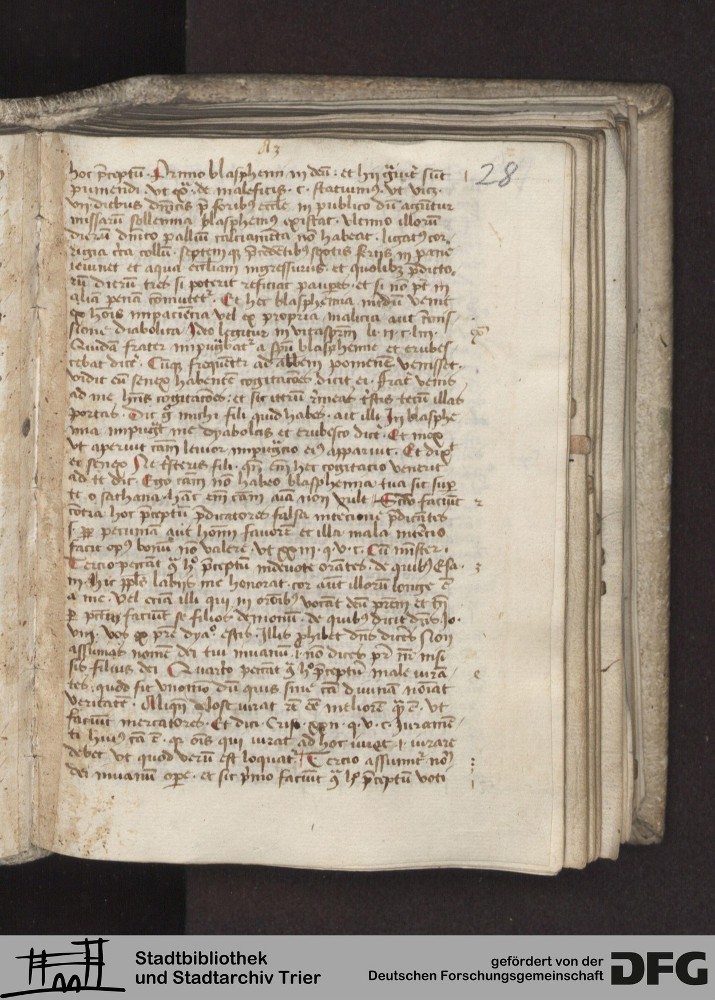 28
hoc p̄ceptū · Primo blasphemi in deū · et hij g̃uit̃ sūt
pumendi · vt ext̃ · de maleficis · c · statuimꝰ · vt vicꝫ
vij diebus dn̄icis p̄ foribus eccl̄e in publico dū agūtur
missarū sollemnia blasphemꝰ existat · vltimo illorū
dierū dn̄ico palliū calciamēta nō habeat · ligatꝰ cor
rigia c̄ca collū · septemqꝫ p̄cedētibꝰ septīs feriis in pane
ieiunet et aqua eccl̄iam ingressurus · et quolibꝫ p̄dicto
rū dierū tres si poterit reficiat paup̲es · et si nō pt̄ in
aliā penā cōmutet᷑ · Et hec blasphemia
ex hōis impaciēcia vel ex propria malicia aut
stione diabolica · Ideo legitur in vitaspr̄m li · ii · c ·
Quidā frater impugbat᷑ a spū blasphemie et erubes
cebat dic̄e · Cūqꝫ frequēter ad abbem pomenē venisset ·
vidit eū senex habentē cogitacōes dicit ei · frat̄ venis
ad me hn̄s cogitacōes · et sic itrū tecū illas
portas · Dic g̊ michi fili quid habes · ait illi In blasphe
mia impugt̄ me dyabolus et erubesco dic̄e · Et mox
vt aperuit cām leuior impugcio eiꝰ apparuit · Et dix̄t
ei senex Ne fili · qn̄ em̄ hec cogitacio venerit
ad te dic · Ego cām nō habeo blasphemia tua sit sup̲
te o sathana · hāc em̄ cām aīa mea non vult · Sc̄do faciūt
cōtra hoc p̄ceptū p̄dicatores falsa intēcione p̄dicātes
i · ꝓp̄t pecuniā aut homī fauorē et illa mala intēcio
facit opꝰ bonū nō valere · vt xxiii · q · v · c · Cū mīster ·
Tercio peccāt ꝯ̄ hͦ p̄ceptū indeuote orātes · de quibꝰ Esa ·
Hic ppl̄s labiis me honorat · cor aūt illorū longe ē
a me · Vel eciā illi qui in orōibꝰ vocāt deū prēm et tn̄
ꝑ pctm̄ faciūt se filios demoniū · de quibus dicit dn̄s Jo ·
viii · Vos ex pr̄e dyaͦ · estis · Illis ꝓhibet dn̄s dicēs Non
assumas nomē dei tui in uanū · i · nō dices pr̄ nr̄ nisi
sis filius dei · Quarto peccāt ꝯ̄ hͦ p̄ceptū male iurā
tes · quod fit vnomō dū quis sine cā diuinā noīat
veritatē · iurat rē ēē meliorē q̄ ē · vt
faciūt mercatores · Et dicit Crisͦ · xxii · q · v · c · Juramē
ti huiꝰ cā ē · qꝛ oīs qui iurat ad hoc iurat · i · iurare
debet vt quod verū est loquat᷑ · Tercio assumit᷑ nō
dei in uanū oꝑe · et sic p̄mo faciūt ꝯ̄ hͦ p̄ceptū voti
Stadtbibliothek
und Stadtarchiv Trier
gefördert von der
Deutschen Forschungsgemeinschaft
DFG